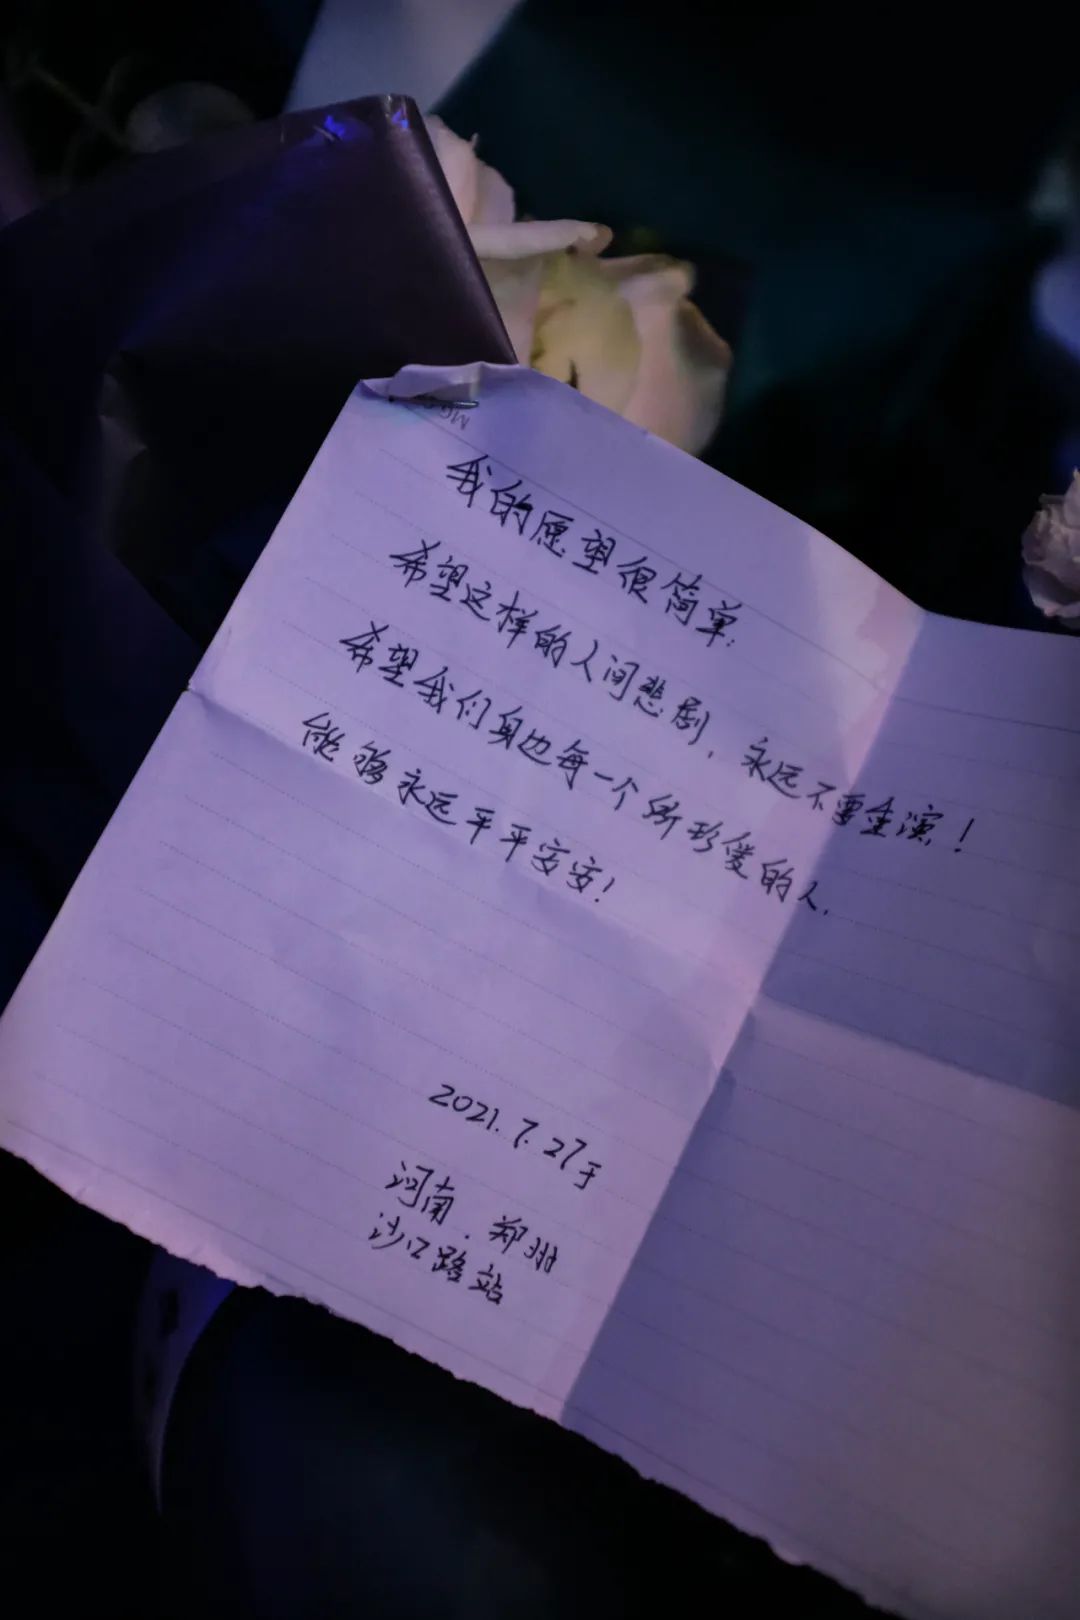 我的愿望很简单:
希望这样的人间悲剧,永远不要重演!
希望我们身边每一个所珍爱的人,
能够永远平平安安!
2021.7.27于
河南.郑州
沙口路站